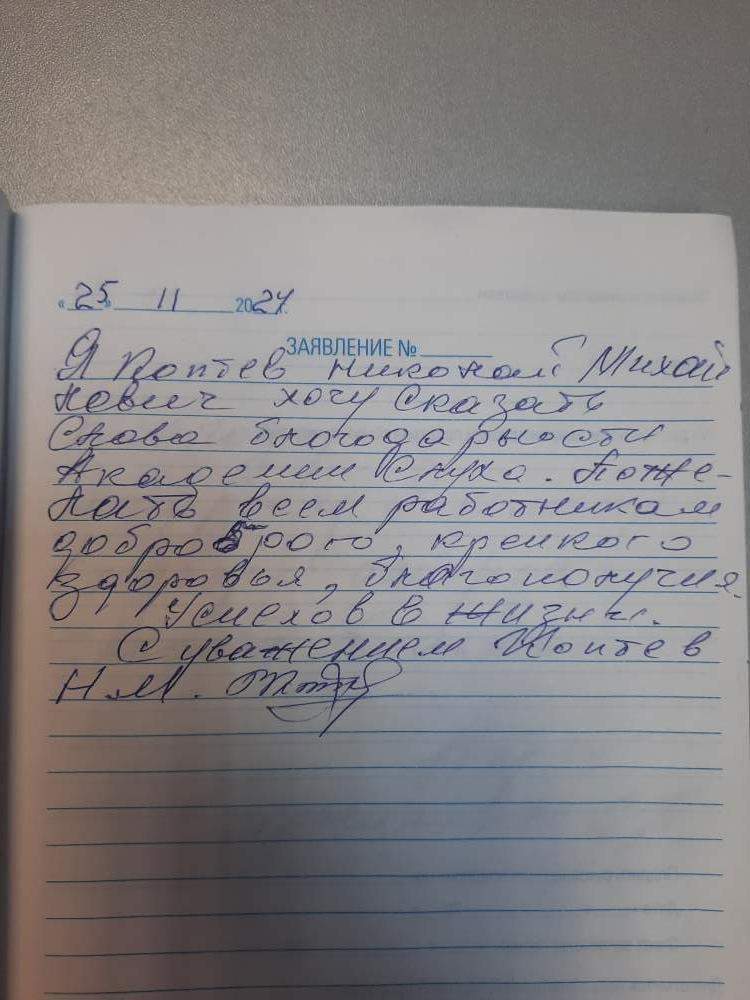 «25» 11 2024
ЗАЯВЛЕНИЕ №
Я Коптев Николай Михай
лович хочу сказать
Слова благодарности
Академии Слуха. Поже-
лать всем работникам
доброброго, крепкого
здоровья, благополучия.
Успехов в жизни.
С уважением Коптев
Н.М.